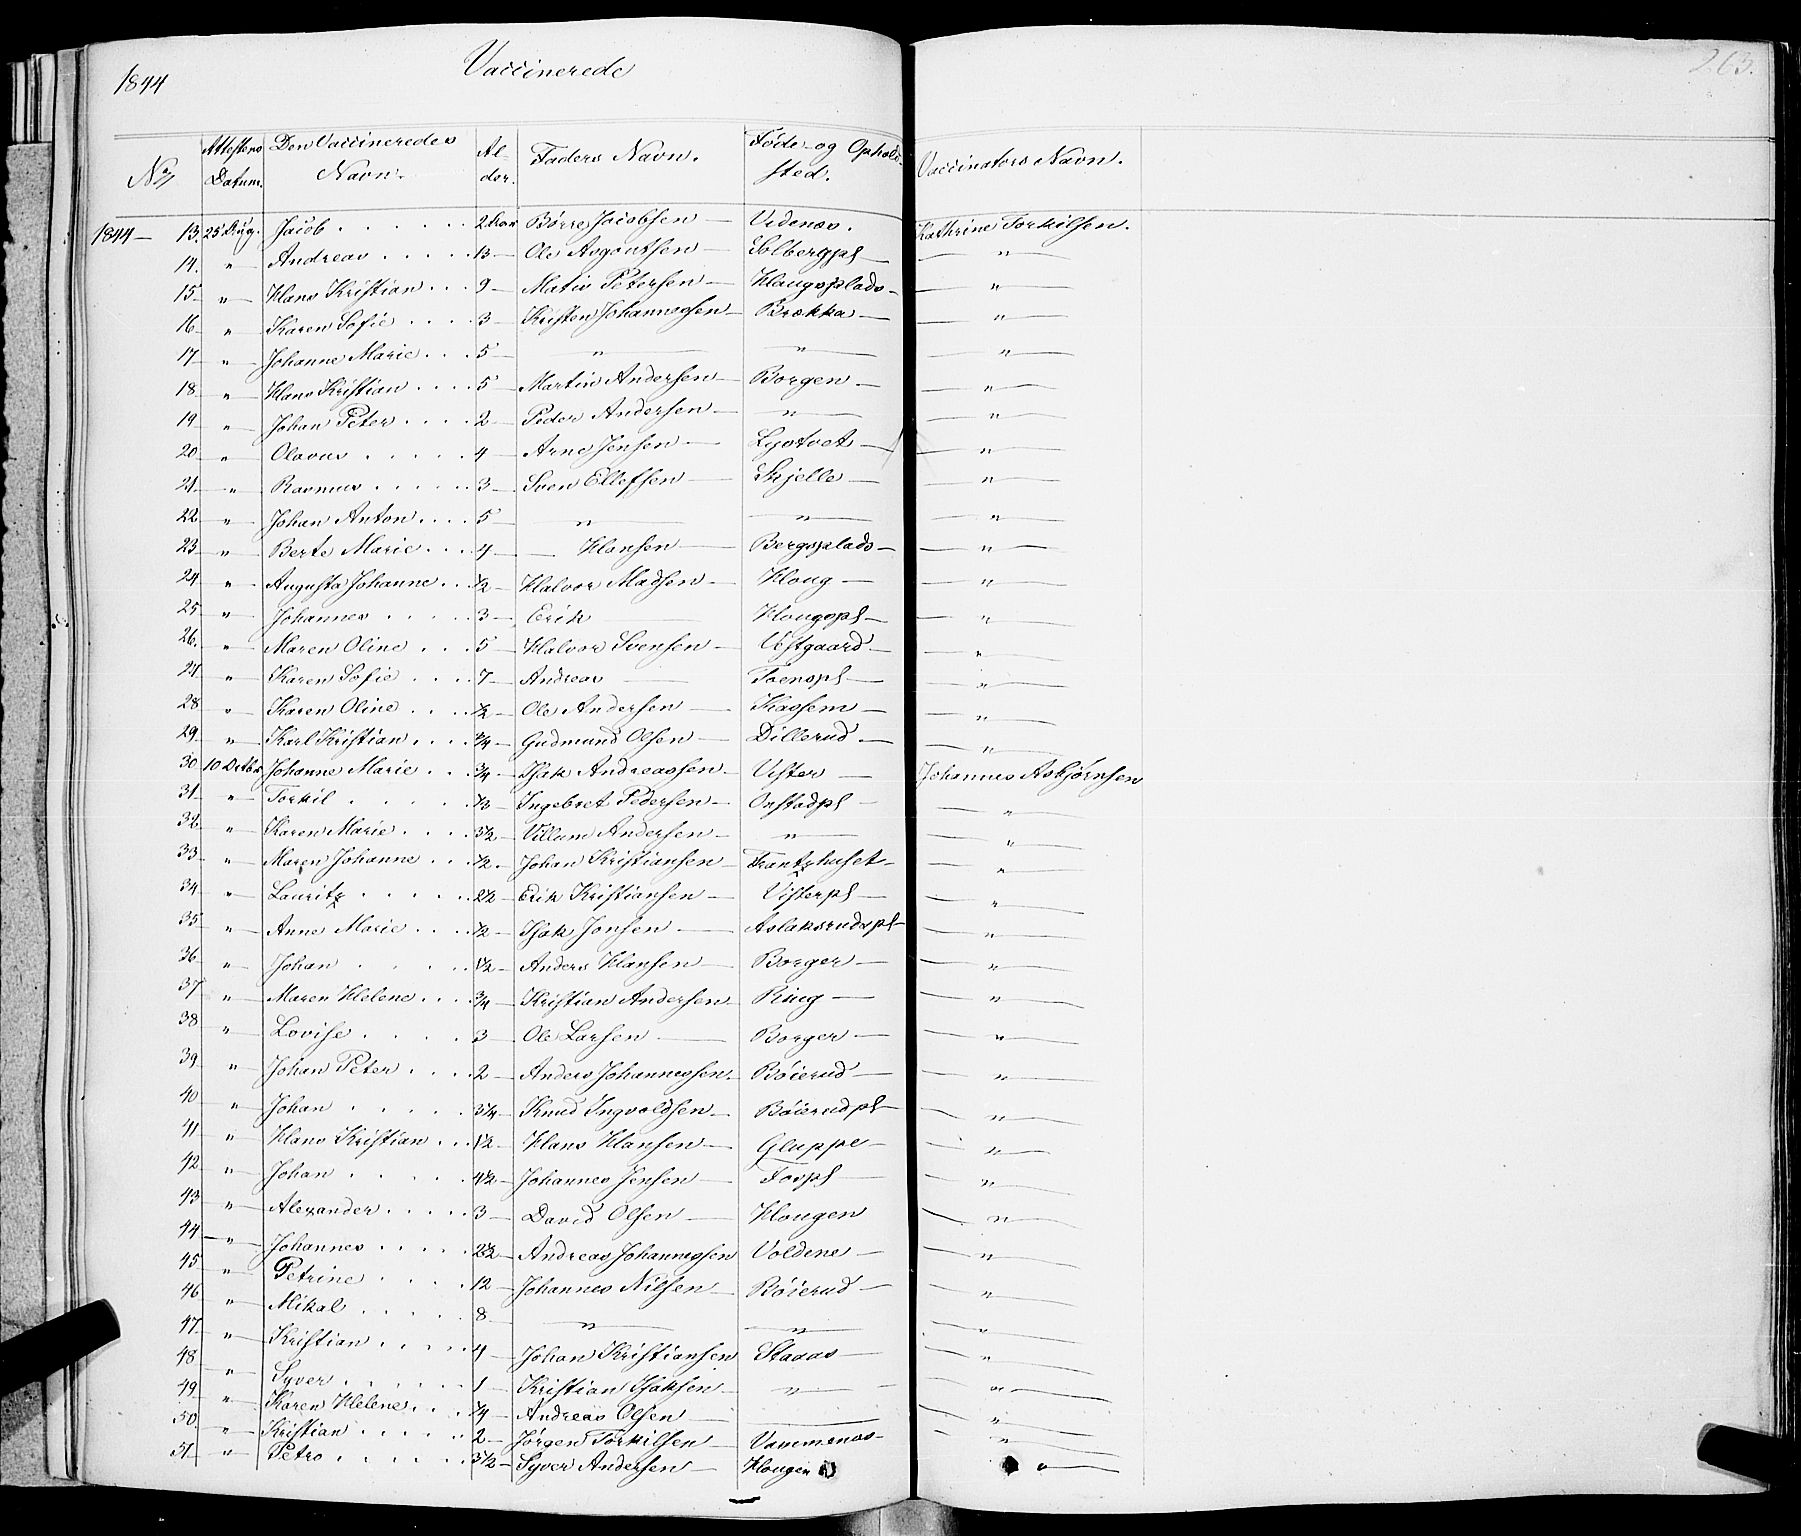 1844 Vaccinerede 265.
No Attestens Datum. Den Vaccineredes Navn. Al-der. Faders Navn. Føde- og Opholdssted. Vaccinators Navn.
1844 — 13. 25 Aug. Jacob . . . . . . 2 Børre Jacobsen — Vedenes. Kathrine Torkilsen.
14. " — Andreas . . . . . 13 — Ole Asgoutsen Solbergpl — — " —
15 — " — Hans Kristian . . . 9 — Matis Petersen — Hougsplads — — " —
16 — " — Karen Sofie . . . . 3 — Kristen Johannessen — Brækka — — " —
17 — " — Johanne Marie . . . 5 — — " — — " — — " —
18 — " — Hans Kristian . . . . 5 — Martin Andersen — Borgen — — " —
19 — " — Johan Peter . . . . 2 — Peder Andersen — — " — — " —
20 — " — Olavus . . . . . 4 — Arne Jensen — Lystvet — — " —
21 — " — Rasmus . . . . . . 3 — Sven Ellefsen — Skjelle — — " —
22 — " — Johan Anton . . . . 5 — " — — " — — " —
23 — " — Berte Marie . . . 4 — — Hansen — Bergsplads — — " —
24 — " — Augusta Johanne . . 1/2 — Halvor Madsen — Houg — — " —
25 — " — Johannes . . . . . 3 — Erik — Hougspl — — " —
26. — " — Maren Oline . . . 5 — Halvor Svensen — Vestgaard — — " —
27 — " — Karen Sofie . . . . 7 — Andreas — Toenspl — — " —
28 — " — Karen Oline . . . . 1/2 — Ole Andersen — Kassem — — " —
29. — " — Karl Kristian . . . . 3/4 — Gudmund Olsen — Dillerud — — " —
30 10 Octbr Johanne Marie . . 3/4 — Isak Andreassen — Vister — Johannes Asbjørnsen
31 — " — Torkil . . . . . . 1/3 — Ingebret Pedersen — Onstadpl — — " —
32 — " — Karen Marie . . . . 3 1/2 — Villum Andersen — — " — — " —
33 — " — Maren Johanne . . 1/2 — Johan Kristiansen — Frantzhuset — — " —
34 — " — Lauritz . . . . . . 2 1/2 — Erik Kristiansen — Visterpl — — " —
35 — " — Anne Marie . . . . 1/2 — Isak Jonsen — Aslaksrudspl — — " —
36 — " — Johan . . . . . 1 1/2 — Anders Hansen — Borger — — " —
37 — " — Maren Helene . . . 3/4 — Kristian Andersen — Ring — — " —
38 — " — Lovise . . . . . 3 — Ole Larsen — Borger — — " —
39 — " — Johan Peter . . . . 2 — Anders Johannessen. Böierud — — " —
40 — " — Johan . . . . . . 3 1/4 — Knud Ingvoldsen — Böierudpl — — " —
41 — " — Hans Kristian . . . 1 1/2 — Hans Hansen — Gluppe — — " —
42 — " — Johan . . . . . . 4 1/2 — Johannes Jensen — Fospl — — " —
43 — " — Alexander . . . . . 3 — David Olsen — Hougen — " —
44 — " — Johannes . . . . . 2 1/2 — Andreas Johannessen Voldene — — " —
45 — " — Petrine . . . . . 12 — Johannes Nilsen — Böierud — — " —
46 — " — Mikal . . . . . . 8 — — " — — " — — " —
47 — " — Kristian . . . . . 4 — Johan Kristiansen Staaas — — " —
48 — " — Syver . . . . . . 1 — Kristian Isaksen — — " — — " —
49 — " — Karen Helene . . . 1/4 — Andreas Olsen — — — " —
50 — " — Kristian . . . . . . 2 — Jørgen Torkilsen — Vammenæs — — " —
51 — " — Petro . . . . . . 3 1/2 — Syver Andersen — Hougen — " —